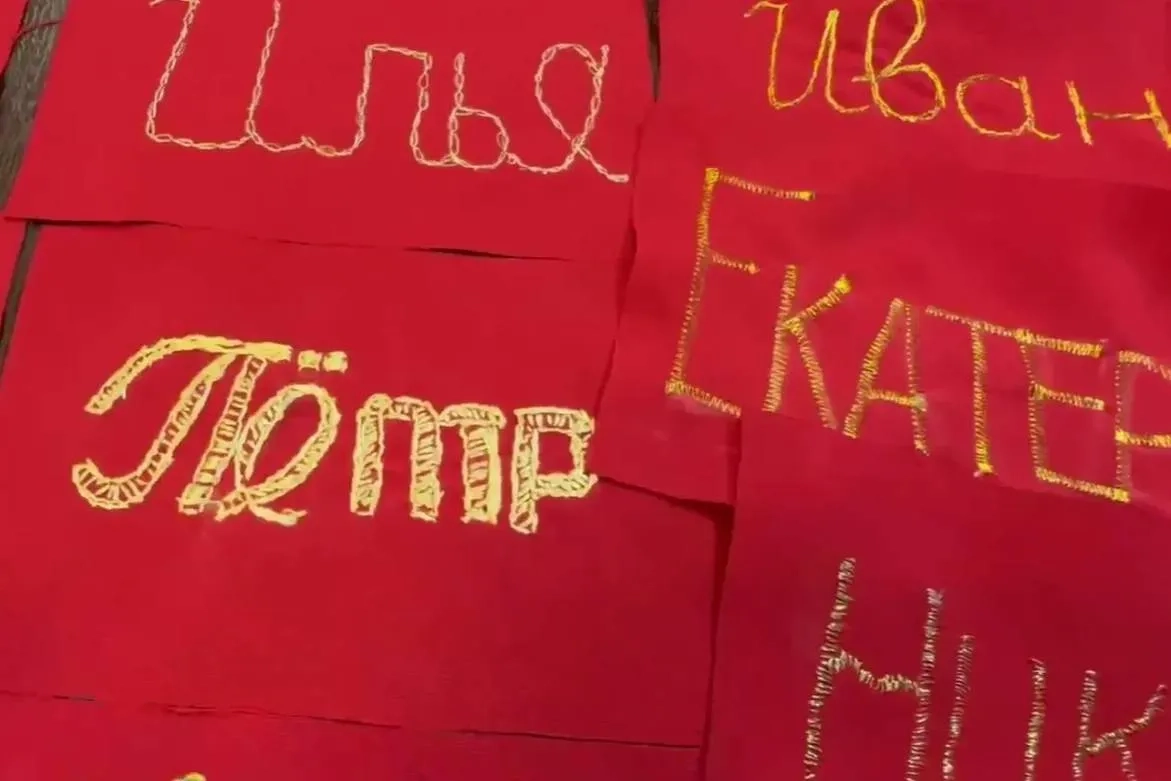 Илья
Иван
ЕКАТЕР
Пётр
НИК